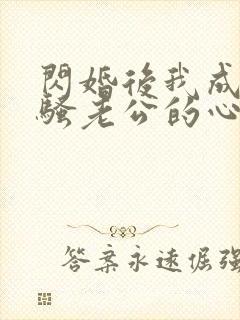 閃婚後我成
騷老公的心
答案永遠倔強